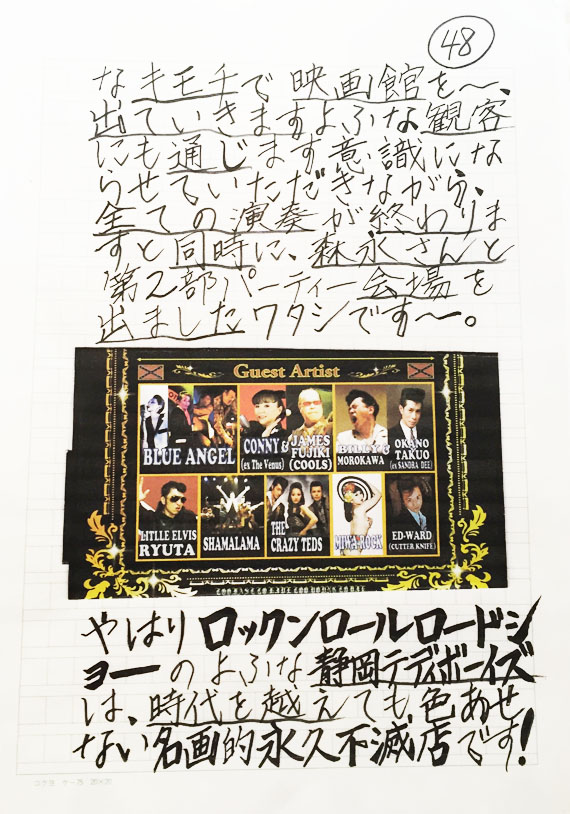 48
なキモチで映画館を〜、
出ていきますよふな観客
にも通じます意識にな
らせていただきながら、
全ての演奏が終わりま
すと同時に、森永さんと
第2部パーティー会場を
出ましたワタシです〜。
Guest Artist
BLUE ANGEL
CONNY
(ex The Venus)
&
JAMES
FUJIKI
(COOLS)
BILLY
MOROKAWA
OKANO
TAKUO
(ex SANDRA DEE)
LITLLE ELVIS
RYUTA
SHAMALAMA
THE
CRAZY TEDS
MIWA ROCK
ED-WARD
(CUTTER KNIFE)
やはりロックンロールロードシ
ョーのよふな静岡テディボーイズ
は、時代を越えても色あせ
ない名画的永久不滅店です!
コクヨ ケー75 20×20